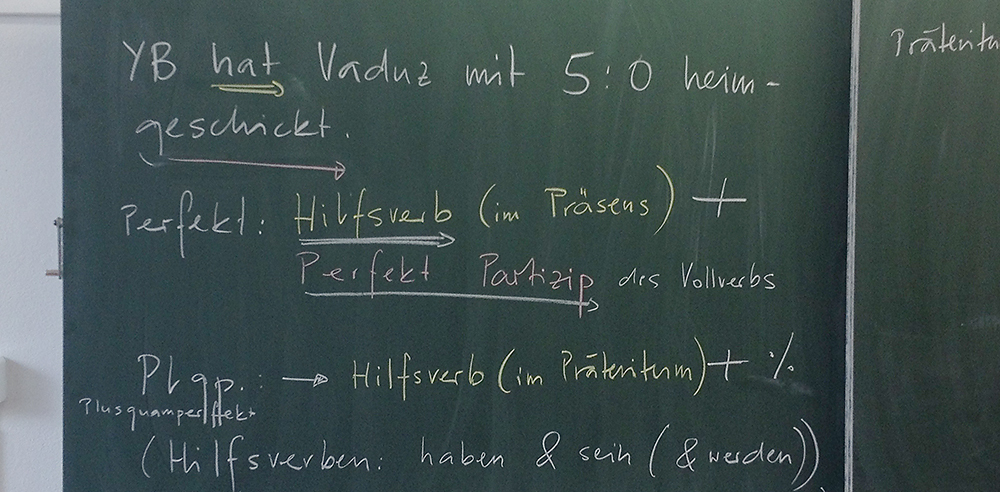 YB hat Vaduz mit 5:0 heim-
geschickt.
Perfekt: Hilfsverb (im Präsens) +
Perfekt Partizip des Vollverbs
Plqp.: → Hilfsverb (im Präteritum) + ./.
Plusquamperfekt
(Hilfsverben: haben & sein (& werden))